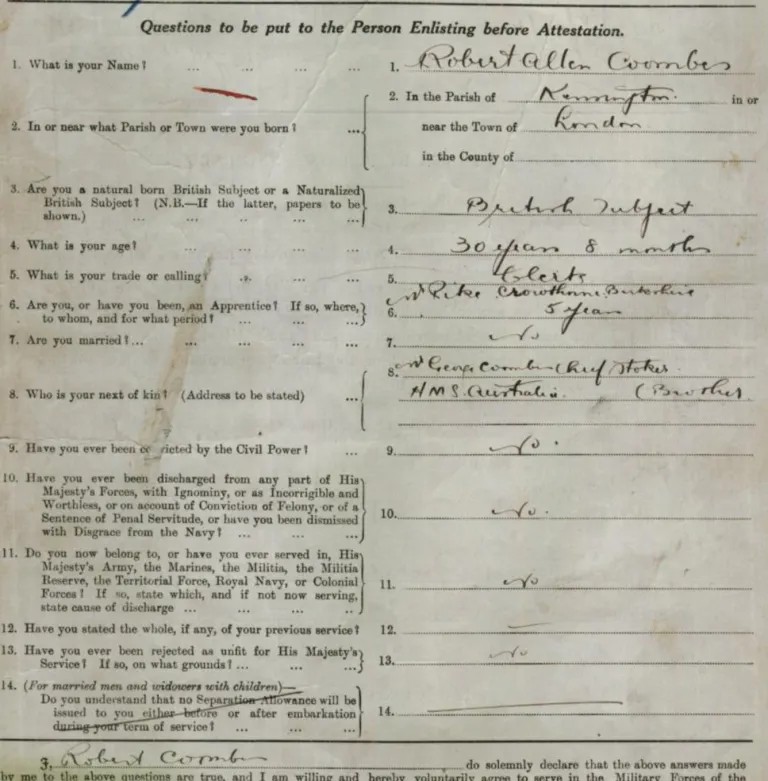 Questions to be put to the Person Enlisting before Attestation.
1. What is your Name? ... ... ... ... 1. Robert Allen Coombes
2. In or near what Parish or Town were you born? ... 2. In the Parish of Kennington. in or
near the Town of London
in the County of
3. Are you a natural born British Subject or a Naturalized
British Subject? (N.B.—If the latter, papers to be
shown.) ... ... ... ... 3. British Subject
4. What is your age? ... ... ... ... 4. 30 years 8 months
5. What is your trade or calling? ... ... ... 5. Clerk
Crowthorne Berkshire
6. Are you, or have you been, an Apprentice? If so, where,
to whom, and for what period? ... ... ... 6. 5 years
7. Are you married? ... ... ... ... ... 7. No
8. Who is your next of kin? (Address to be stated) ... 8. George Coombes Chief Stoker
HMS. Australia. (Brother
9. Have you ever been convicted by the Civil Power? ... 9. No.
10. Have you ever been discharged from any part of His
Majesty's Forces, with Ignominy, or as Incorrigible and
Worthless, or on account of Conviction of Felony, or of a
Sentence of Penal Servitude, or have you been dismissed
with Disgrace from the Navy? ... ... ... 10. No.
11. Do you now belong to, or have you ever served in, His
Majesty's Army, the Marines, the Militia, the Militia
Reserve, the Territorial Force, Royal Navy, or Colonial
Forces? If so, state which, and if not now serving,
state cause of discharge ... ... ... ... 11. No
12. Have you stated the whole, if any, of your previous service? 12. —
13. Have you ever been rejected as unfit for His Majesty's
Service? If so, on what grounds? ... ... ... 13. No
14. (For married men and widowers with children)—
Do you understand that no Separation Allowance will be
issued to you either before or after embarkation
during your term of service? ... ... ... 14.
I, Robert Coombes do solemnly declare that the above answers made
by me to the above questions are true, and I am willing and hereby voluntarily agree to serve in the Military Forces of the